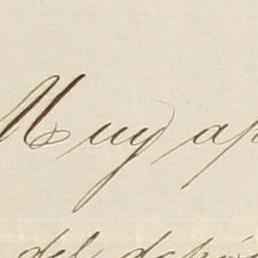 Muy ap
del depó